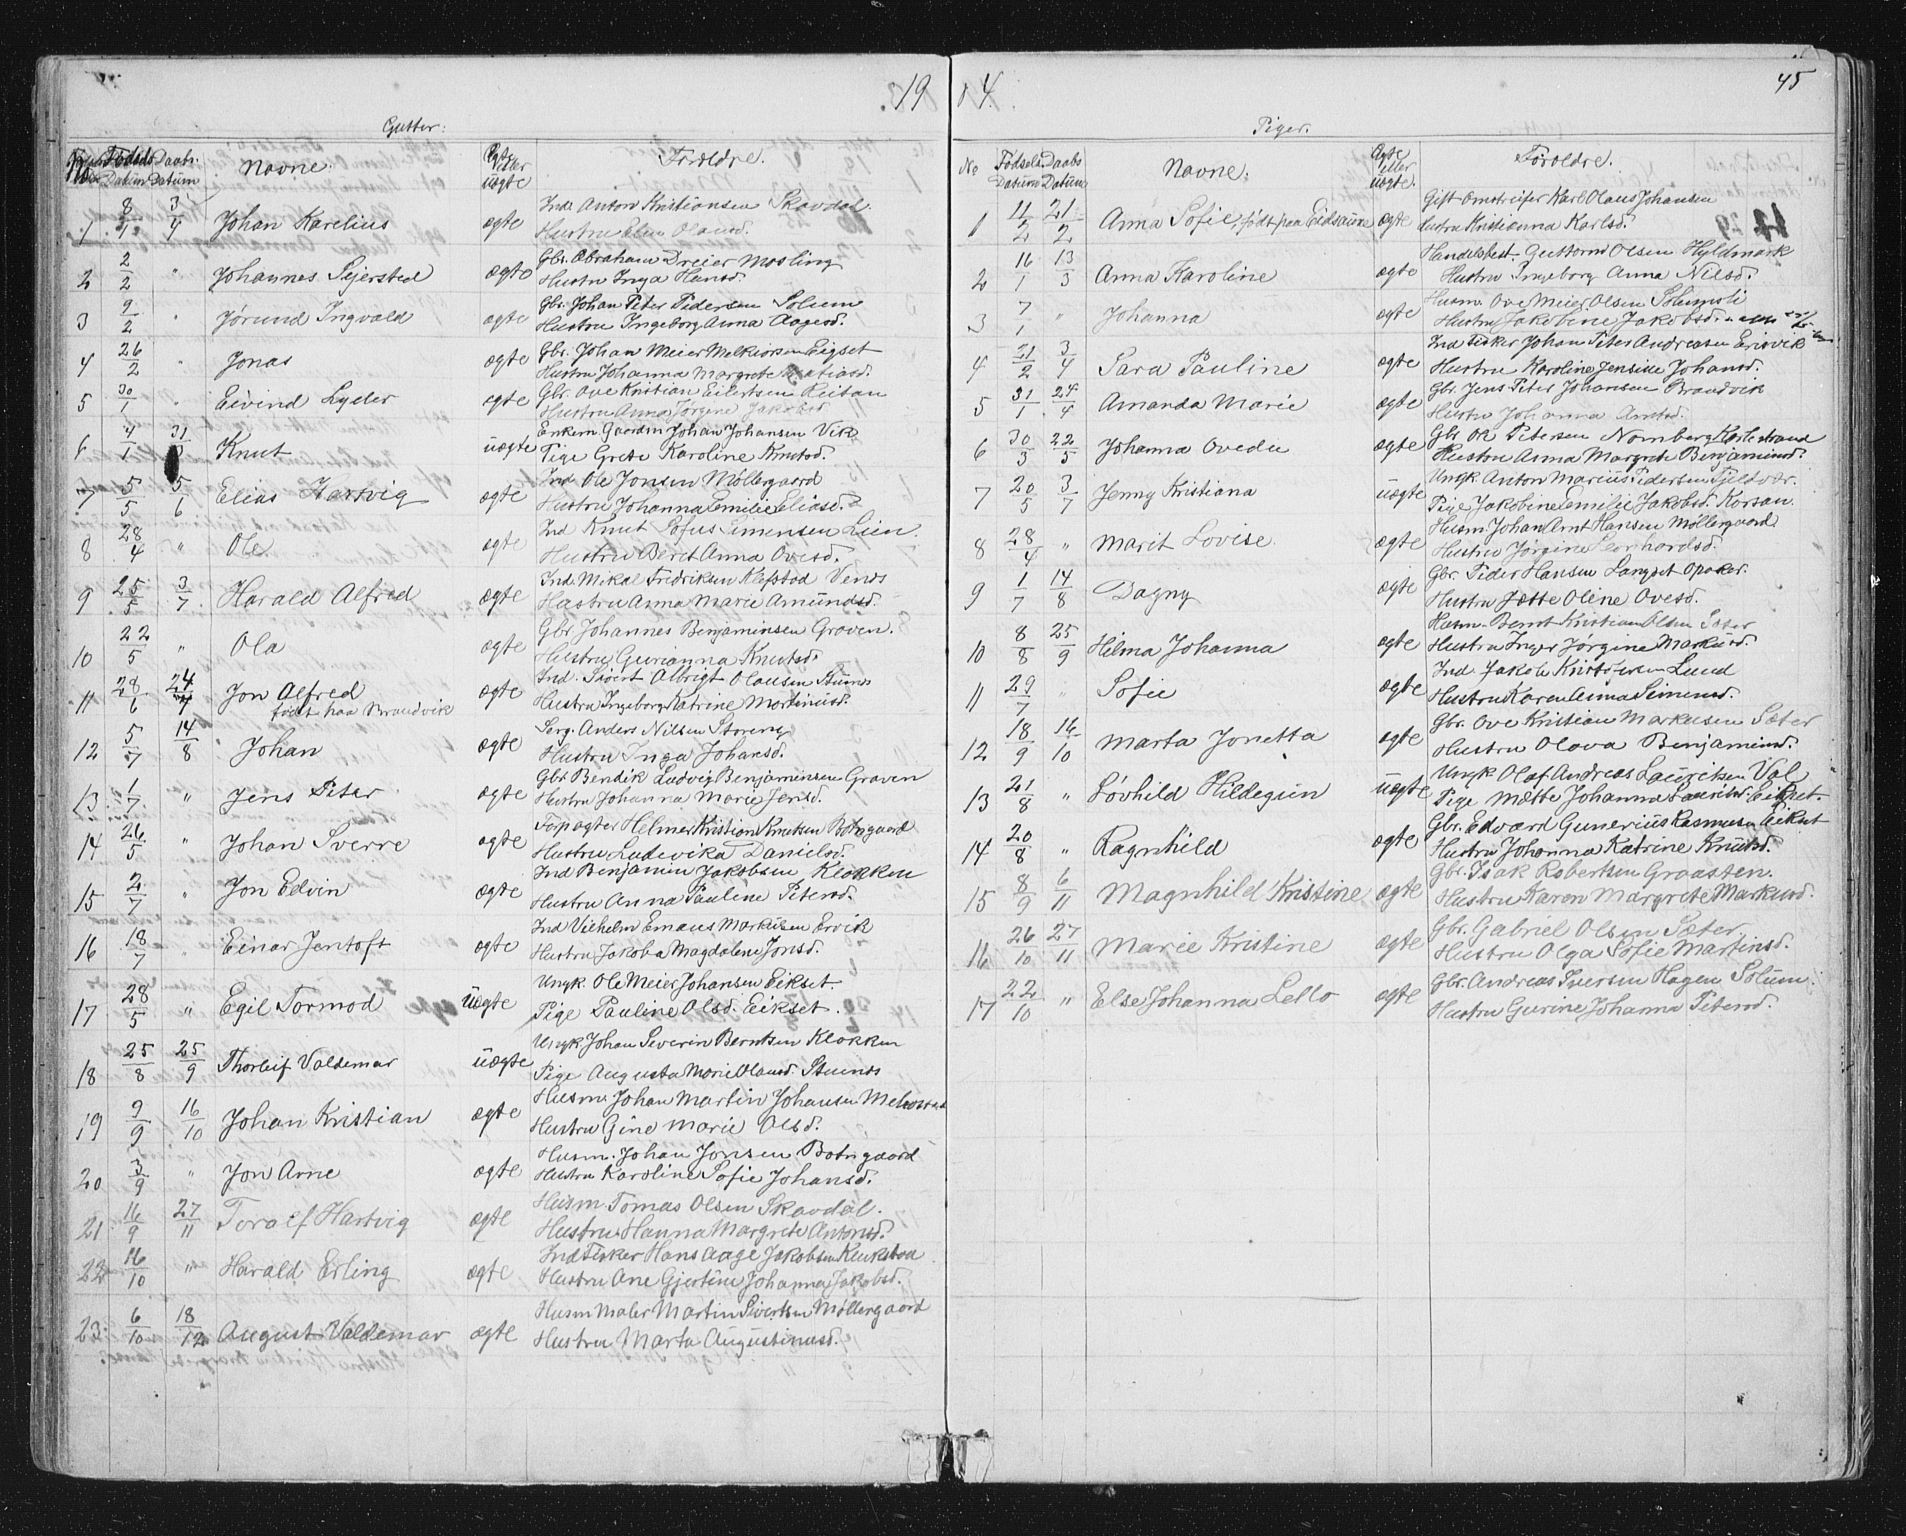 19
Gutter:
No
Fødsels Datum
Daabs Datum
Navne:
Ægte eller uægte
Forældre.
1 8/1 3/4 Johan Karelius ægte Ind. Anton Kristiansen Skavdal
Hustru Elen Olausd.
2 2/2 " Johannes Sejersted ægte Gbr. Abraham Dreier Mosling
Hustru Inga Hansd.
3 9/2 " Jørund Ingvald ægte Gbr. Johan Peter Pedersen Solum
Hustru Ingeborg Anna Aagesd.
4 26/2 " Jonas ægte Gbr. Johan Meier Melkiorsen Eigset
Hustru Johanna Margrete Matiasd.
5 30/1 " Eivind Lyder ægte Gbr. Ove Kristian Eilertsen Reitan
Hustru Anna Jørgine Jakobsd.
6 4/1 31/ Knut uægte Enkem. Gaardm Johan Johansen Vik
Pige Grete Karoline Knutsd.
7 5/5 5/6 Elias Hartvig ægte Ind Ole Jonsen Møllergaard
Hustru Johanna Emilie Eliasd.
8 28/4 " Ole ægte Ind Knut Sefus Simensen Lien.
Hustru Beret Anna Ovesd.
9 25/5 3/7 Harald Alfred ægte Ind Mikal Fredriksen Vends
Hustru Anna Marie Amundsd.
10 22/5 " Ola ægte Gbr Johannes Benjaminsen Graven.
Hustru Gurianna Knutsd.
11 28/6 24/7 Jon Alfred ægte Ind. Sivert Albrigt Olausen Stuenes
født paa Brandvik Hustru Ingeborg Katrine Mortinusd.
12 5/7 14/8 Johan ægte Serg. Anders Nilsen Storeng
Hustru Inga Johansd.
13 1/7 " Jens Peter ægte Gbr Bendik Ludvig Benjaminsen Graven
Hustru Johanna Marie Jensd.
14 26/5 " Johan Sverre ægte Forpagter Helmer Kristian Knutsen Botngaard
Hustru Ludevika Danielsd.
15 2/7 Jon Edvin ægte Ind Benjamin Jakobsen Klokken
Hustru Anna Pauline Petersd.
16 18/7 " Einar Jentoft ægte Ind Vilhelm Emaus Markusen Ervik
Hustru Jakoba Magdalene Jonsd.
17 28/5 " Egil Tormod uægte Ungk. Ole Meier Johansen Eikset
Pige Pauline Olsd. Eikset.
18 25/8 25/9 Thorleif Valdemar uægte Ungk Johan Severin Berntsen Klokken
Pige Augusta Marie Olausd. Stuenes
19 9/9 16/10 Johan Kristian ægte Husm. Johan Martin Johansen
Hustru Gine Marie Olsd.
20 3/9 " Jon Arne ægte Husm. Johan Jonsen Botngaard
Hustru Karoline Sofie Johansd.
21 16/9 27/11 Toralf Hartvig ægte Husm. Tomas Olsen Skavdal.
Hustru Hanna Margrete Antonsd.
22 16/10 " Harald Erling ægte Ind Fisker Hans Aage Jakobsen
Hustru Ane Gjertine Johanna Jakobsd.
23 6/10 18/12 August Valdemar ægte Husm Maler Martin Sivertsen Møllergaard
Hustru Marta Augustinusd.
04.
45
Piger.
No
Fødsels Datum
Daabs Datum
Navne:
Ægte eller uægte.
Forældre.
1 11/2 21/2 Anna Sofie, født paa Eidsøre ægte Gift Omstreifer Karl Olaus Johansen
Hustru Kristianna Karlsd.
2 16/1 13/3 Anna Karoline ægte Handelsbest. Guttorm Olsen Hyldmark
Hustru Ingeborg Anna Nilsd.
3 7/1 " Johanna ægte Husm. Ove Meier Olsen Solemsli
Hustru Jakobine Jakobsd.
4 21/2 3/4 Sara Pauline ægte Ind Fisker Johan Peter Andreasen Ervik
Hustru Karoline Jensine Johansd.
5 31/1 24/4 Amanda Marie ægte Gbr. Jens Peter Johansen Brandvik
Hustru Johanna Arntsd.
6 30/3 22/5 Johanna Ovedie ægte Gbr. Ole Petersen Karlestrand
Hustru Anna Margrete Benjaminsd.
7 20/5 3/7 Jenny Kristiana uægte Ungk Anton Marius Pedersen
Pige Jakobine Emilie Jakobsd. Korsan.
8 28/4 " Marit Lovise ægte Husm. Johan Arnt Hansen Møllergaard
Hustru Jørgine Leonhardsd.
9 1/7 14/8 Dagny ægte Gbr. Peder Hansen Langset Opaker.
Hustru Jette Oline Ovesd.
10 8/8 25/9 Hilma Johanna ægte Husm. Bernt Kristian Olsen Sæter
Hustru Inger Jørgine Markusd.
11 29/7 " Sofie ægte Ind. Jakob Kristofersen Lund
Hustru Karen Anna Simensd.
12 18/9 16/10 Marta Jonetta ægte Gbr. Ove Kristian Markusen Sæter
Hustru Olava Benjaminsd.
13 21/8 " Løvhild Hildegun uægte Ungk. Olaf Andreas Lauritsen Val
Pige Mætte Johanna Lauritsd. Eikset.
14 20/8 " Ragnhild ægte Gbr. Edvard Gunerius Rasmussen Eikset
Hustru Johanna Katrine Knutsd.
15 8/9 6/11 Magnhild Kristine ægte Gbr. Isak Robertsen Graasten.
Hustru Karen Margrete Markusd.
16 26/10 27/11 Marie Kristine ægte Gbr. Gabriel Olsen Sæter
Hustru Olga Sofie Martinsd.
17 22/10 " Else Johanna Lello ægte Gbr. Andreas Iversen Hagen Solum.
Hustru Gurine Johanna Petersd.